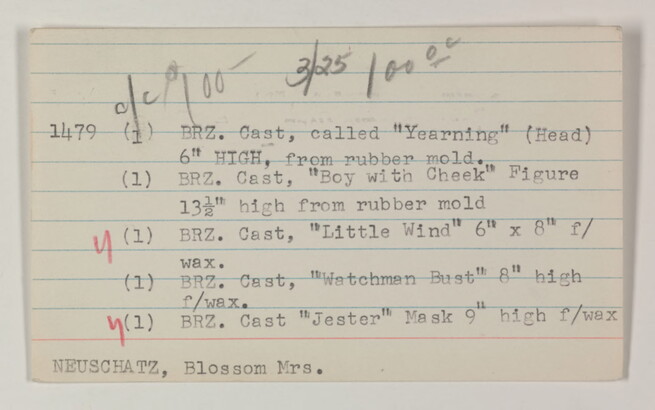 c/c 100— 3/25 100 00
1479 (1) BRZ. Cast, called "Yearning" (Head)
6" HIGH, from rubber mold.
(1) BRZ. Cast, "Boy with Cheek" Figure
13½" high from rubber mold
(1) BRZ. Cast, "Little Wind" 6" x 8" f/
wax.
(1) BRZ. Cast, "Watchman Bust" 8" high
f/wax.
(1) BRZ. Cast "Jester" Mask 9" high f/wax
NEUSCHATZ, Blossom Mrs.